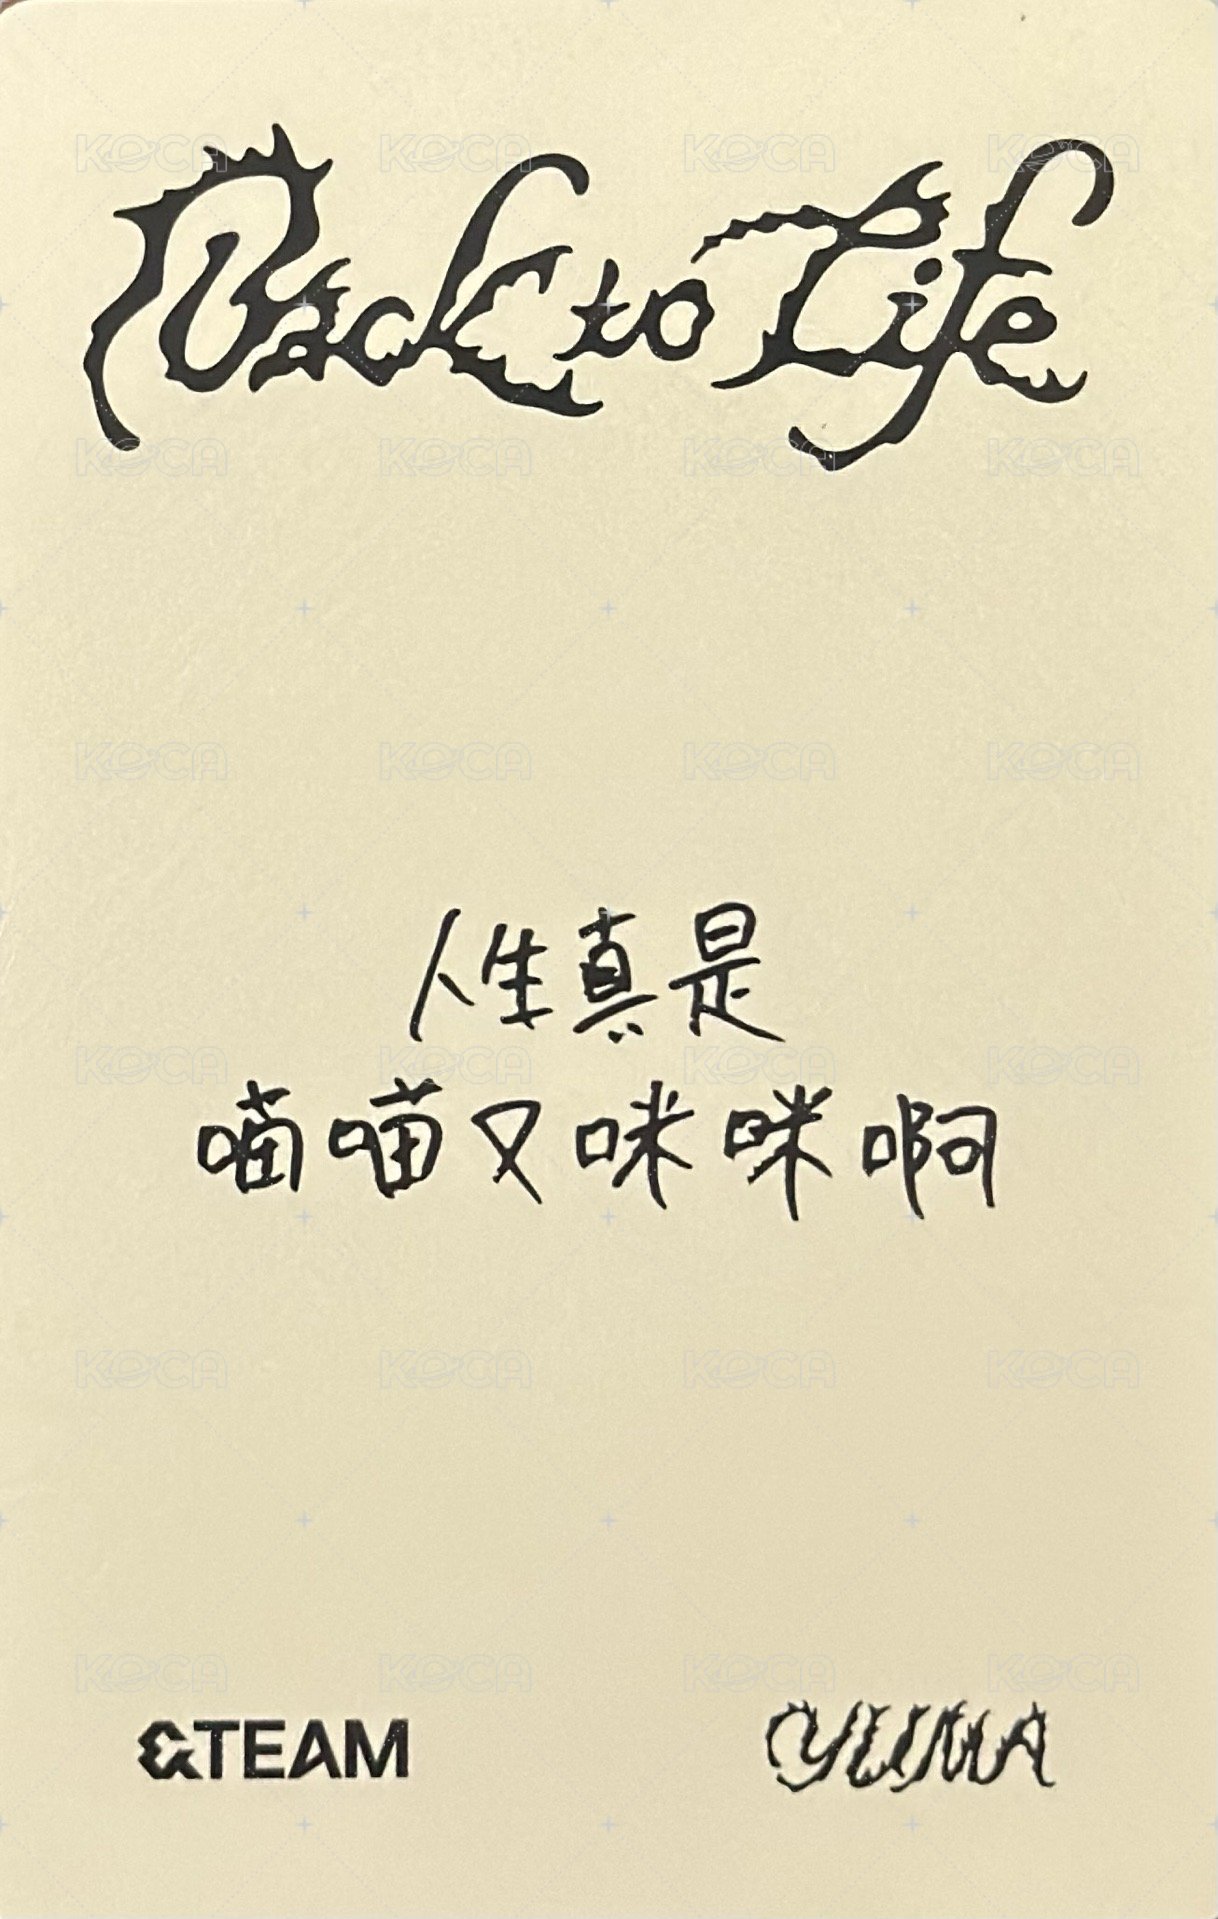 Back to Life
人生真是
喵喵又咪咪啊
&TEAM
YUMA
KOCA